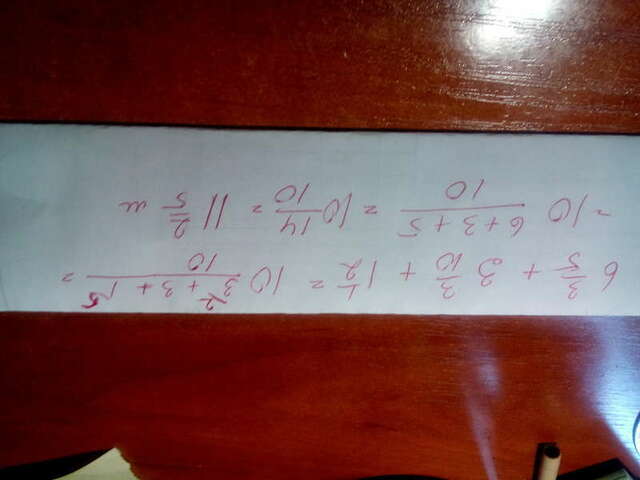 6 3/5 + 3 3/10 + 1 1/2 = 10 (3² + 3 + 1⁵)/10 =
= 10 (6+3+5)/10 = 10 14/10 = 11 2/5 м